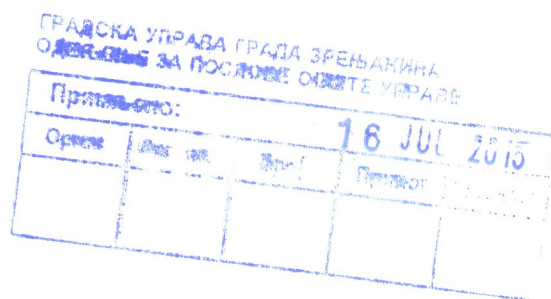 ГРАДСКА УПРАВА ГРАДА ЗРЕЊАНИНА
ОДЕЉЕЊЕ ЗА ПОСЛОВЕ ОПШТЕ УПРАВЕ
Примљено:
16 JUL 2015
Орган Број Прилог